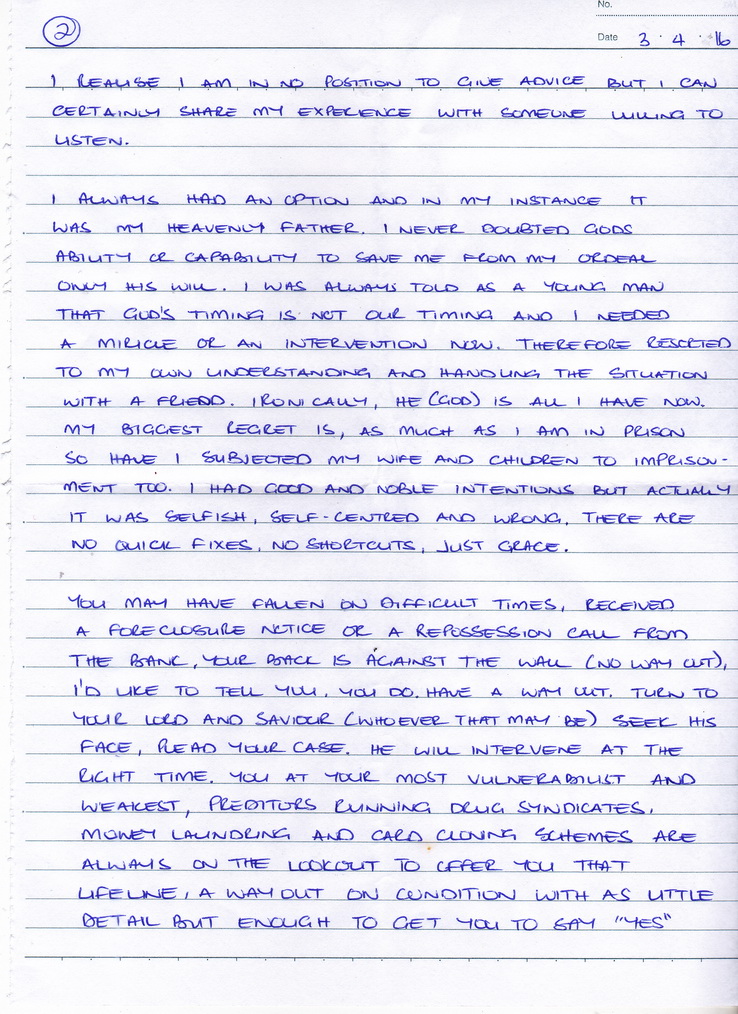 2
No.
Date 3 . 4 . 16
I REALISE I AM IN NO POSITION TO GIVE ADVICE BUT I CAN
CERTAINLY SHARE MY EXPERIENCE WITH SOMEONE WILLING TO
LISTEN.
I ALWAYS HAD AN OPTION AND IN MY INSTANCE IT
WAS MY HEAVENLY FATHER. I NEVER DOUBTED GODS
ABILITY OR CAPABILITY TO SAVE ME FROM MY ORDEAL
ONLY HIS WILL. I WAS ALWAYS TOLD AS A YOUNG MAN
THAT GOD'S TIMING IS NOT OUR TIMING AND I NEEDED
A MIRICLE OR AN INTERVENTION NOW. THEREFORE RESORTED
TO MY OWN UNDERSTANDING AND HANDLING THE SITUATION
WITH A FRIEND. IRONICALLY, HE (GOD) IS ALL I HAVE NOW.
MY BIGGEST REGRET IS, AS MUCH AS I AM IN PRISON
SO HAVE I SUBJECTED MY WIFE AND CHILDREN TO IMPRISON-
MENT TOO. I HAD GOOD AND NOBLE INTENTIONS BUT ACTUALLY
IT WAS SELFISH, SELF-CENTRED AND WRONG. THERE ARE
NO QUICK FIXES, NO SHORTCUTS, JUST GRACE.
YOU MAY HAVE FALLEN ON DIFFICULT TIMES, RECEIVED
A FORECLOSURE NOTICE OR A REPOSSESSION CALL FROM
THE BANK, YOUR BACK IS AGAINST THE WALL (NO WAY OUT),
I'D LIKE TO TELL YOU, YOU DO. HAVE A WAY OUT. TURN TO
YOUR LORD AND SAVIOUR (WHOEVER THAT MAY BE) SEEK HIS
FACE, PLEAD YOUR CASE. HE WILL INTERVENE AT THE
RIGHT TIME. YOU AT YOUR MOST VULNERABILIST AND
WEAKEST, PREDITORS RUNNING DRUG SYNDICATES,
MONEY LAUNDRING AND CARD CLONING SCHEMES ARE
ALWAYS ON THE LOOKOUT TO OFFER YOU THAT
LIFELINE, A WAY OUT ON CONDITION WITH AS LITTLE
DETAIL BUT ENOUGH TO GET YOU TO SAY "YES"